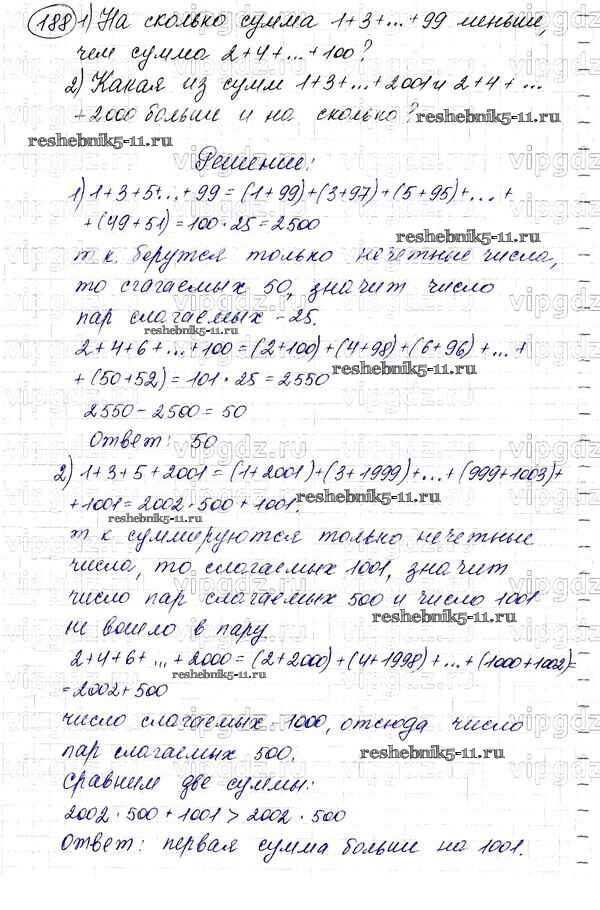 188 1) На сколько сумма 1+3+...+99 меньше,
чем сумма 2+4+...+100?
2) Какая из сумм 1+3+...+2001 и 2+4+...
+2000 больше и на сколько?
reshebnik5-11.ru
reshebnik5-11.ru
Решение:
1) 1+3+5+...+99 = (1+99)+(3+97)+(5+95)+...+
+(49+51) = 100·25 = 2500
reshebnik5-11.ru
т к. берутся только нечетные числа,
то сгагаемых 50, значит число
пар слагаемых - 25.
reshebnik5-11.ru
2+4+6+...+100 = (2+100)+(4+98)+(6+96)+...+
+(50+52) = 101·25 = 2550
reshebnik5-11.ru
2550-2500 = 50
Ответ: 50
2) 1+3+5+2001 = (1+2001)+(3+1999)+...+(999+1003)+
+1001 = 2002·500+1001.
reshebnik5-11.ru
reshebnik5-11.ru
т к суммируются только нечетные
числа, то слагаемых 1001, значит
число пар слагаемых 500 и число 1001
не вошло в пару
reshebnik5-11.ru
2+4+6+...+2000 = (2+2000)+(4+1998)+...+(1000+1002)=
=2002+500
reshebnik5-11.ru
число слагаемых - 1000, отсюда число
пар слагаемых 500.
reshebnik5-11.ru
Сравним две суммы:
2002·500+1001 > 2002·500
Ответ: первая сумма больши на 1001.
vipgdz.ru